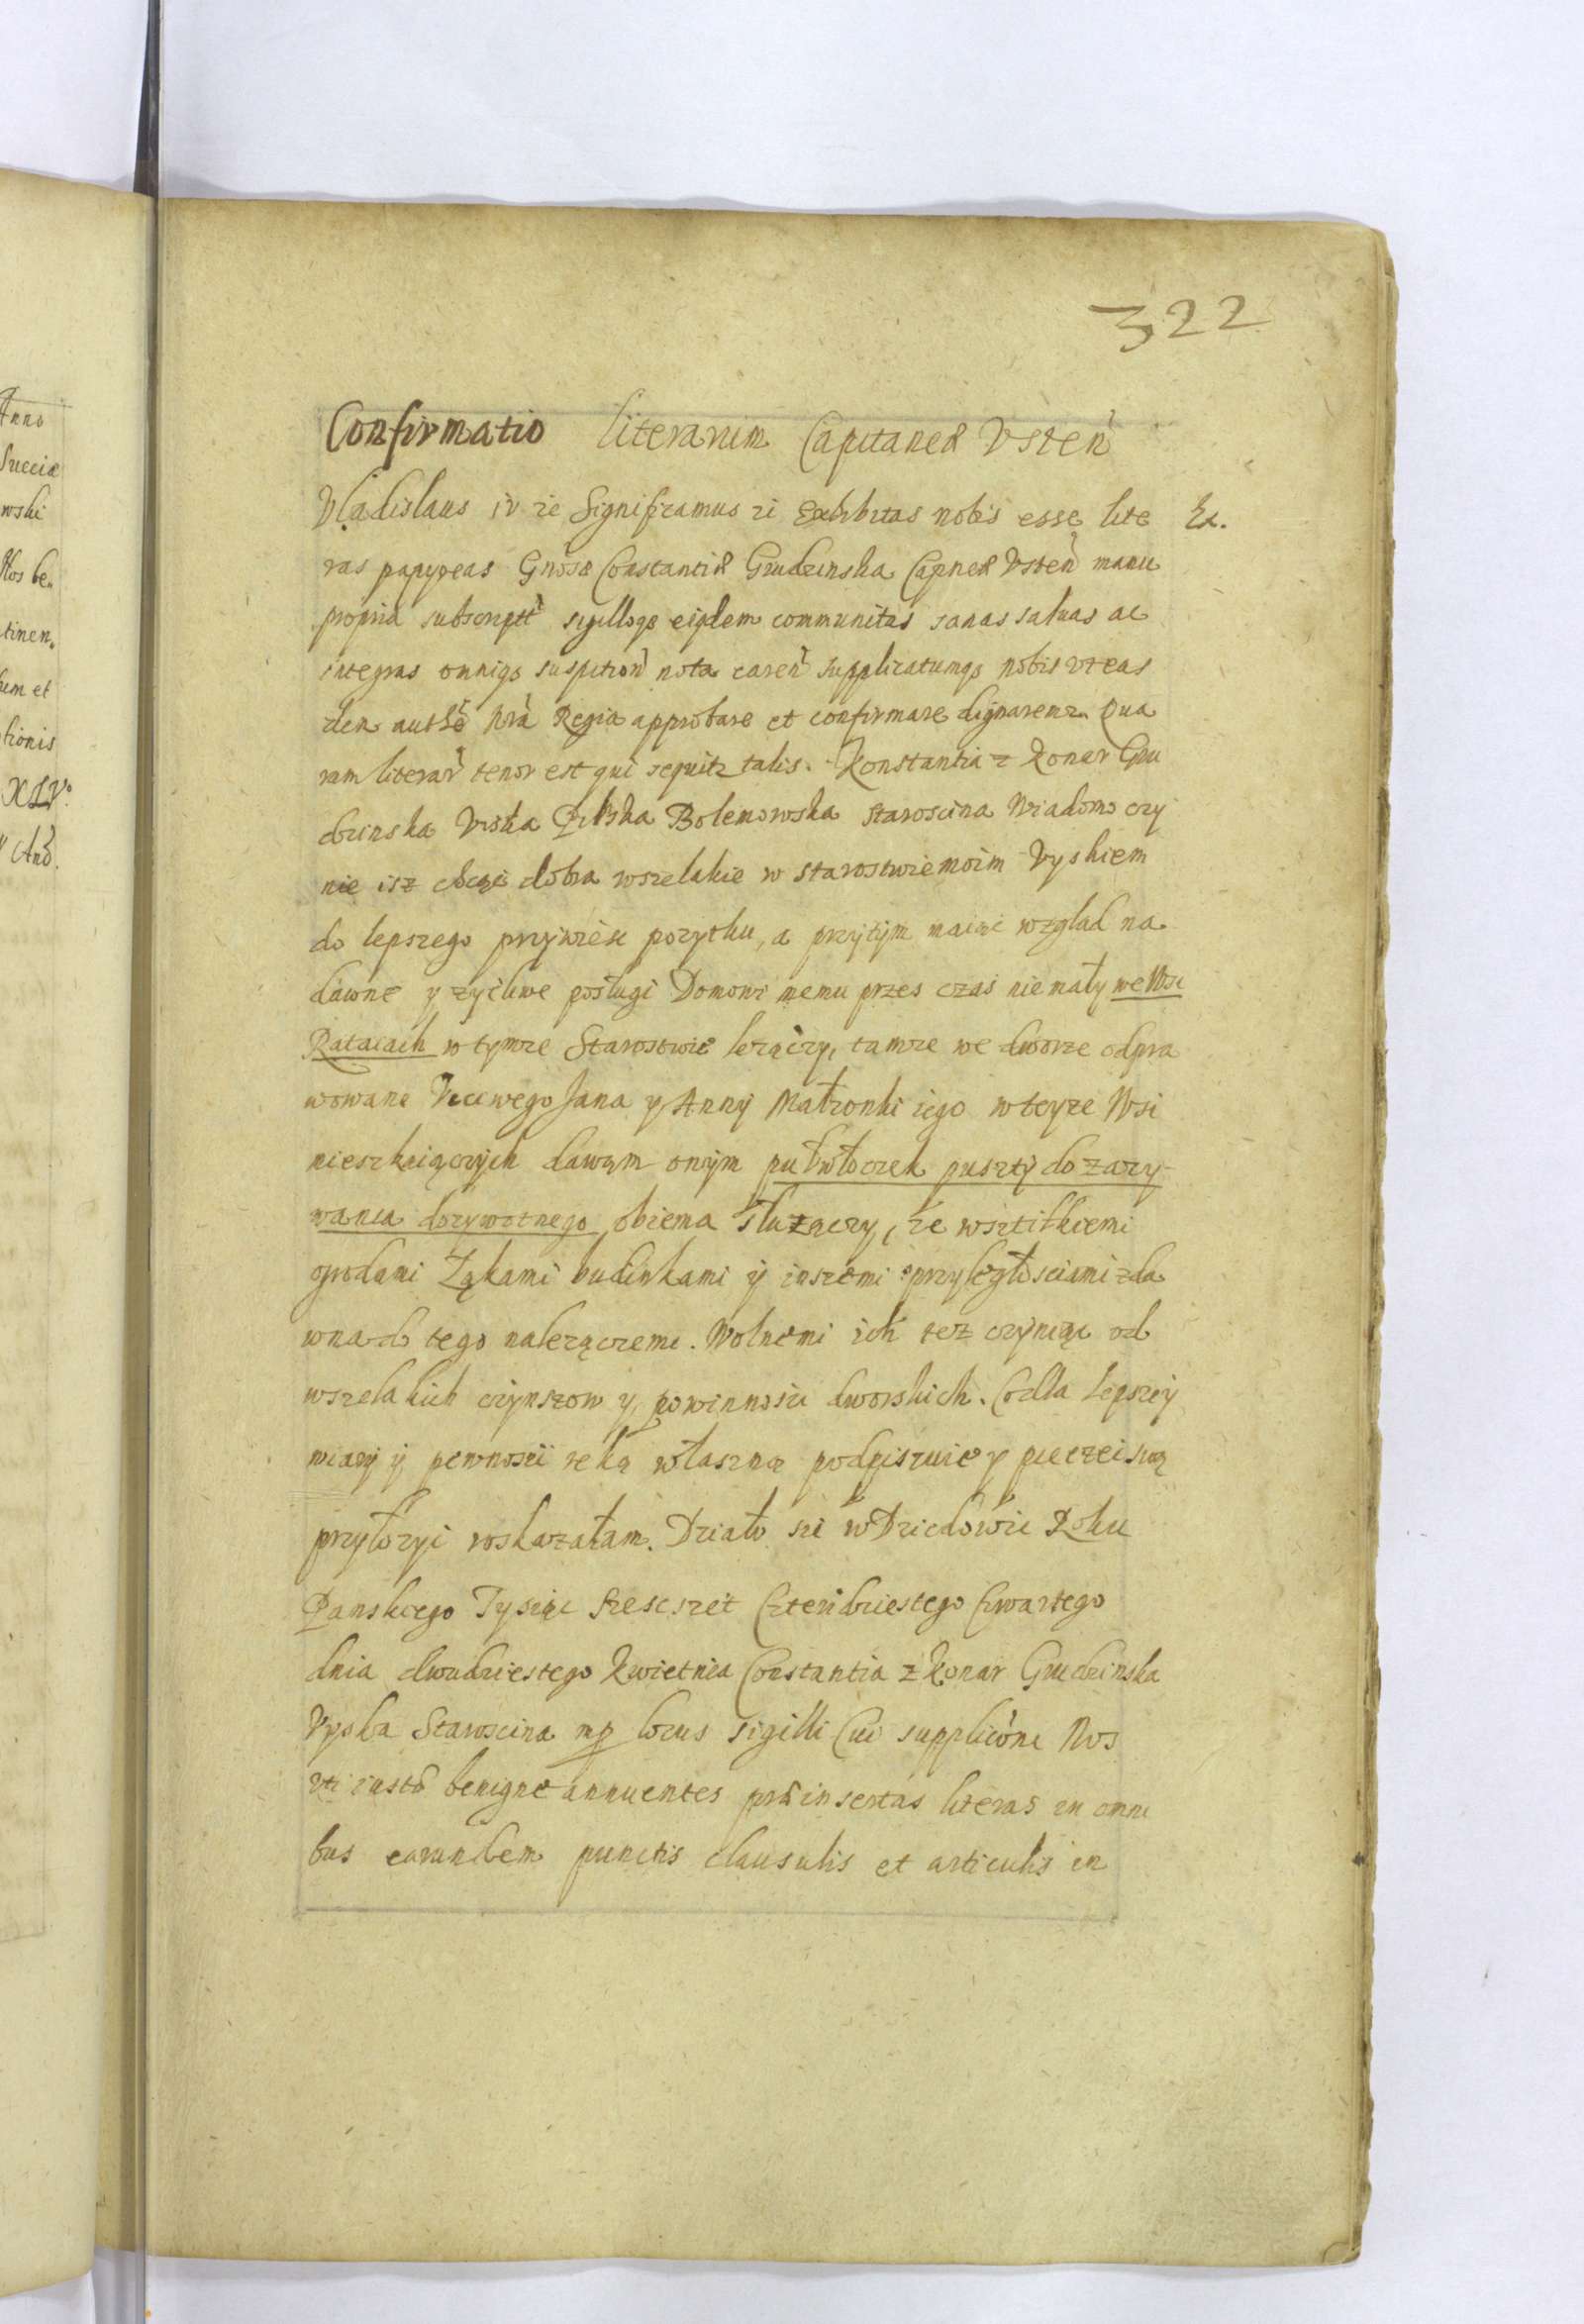 322
Confirmatio literarum Capitaneæ Vsten
Vladislaus iv ię Significamus ię Exhibitas nobis esse lite Ex.
ras papyreas Gnosæ Constantiæ Grudzinska Capneæ Vsten manu
propria subscriptt sigilloqȝ eiqdem communitas sanas saluas ac
integras omniqȝ suspition nota caren supplicatumqȝ nobis vt eas
dem authe nra Regia approbare et confirmare dignaremr. Qua
rum literar tenor est qui sequitr talis. Konstantia z Konar Gru
dzinska Viska Pilska Bolemowska Staroscina Wiadomo czy
nie isz chcąc dobra wszelakie w starostwie moim Vyskiem
do lepszego przywiesc pozytku, a przytym maiąc wzglad na
dawne y zyczliwe posługi Domowi memu przes czas nie mały we Wsi
Rataiach w tymze Starostwie lezączy, tamze we dworze odpra
wowane Vcciwego Jana y Anny Małzonki iego w teyze Wsi
mieszkaiączych dawam onym pułwłoczek puszty do zazy
wania dozywotnego obiema słuzączy, ze wsztitkiemi
ogrodami Łąkami budinkami y inszemi przyległosciami zda
wna do tego nalezączemi. Wolnemi ich tez czyniąc od
wszelakich czynszow y powinnosci dworskich. Co dla lepszey
wiary y pewnosci ręką właszną podpiszuie y pieczęi swą
przyłozyi roskazałam. Działo sie w Dziedowie Roku
Panskiego Tysiąc szescszet Czterdziestego Czwartego
dnia dwudziestego Kwietnia Constantia z Konar Grudzinska
Vyska Staroscina mp locus sigilli Cui supplicone Nos
vti iusto benigne annuentes præinsertas literas in omni
bus earundem punctis clausulis et articulis in
Anno
Sueciæ
wski
Nos be
tinen
um et
tionis
XLV.
And.